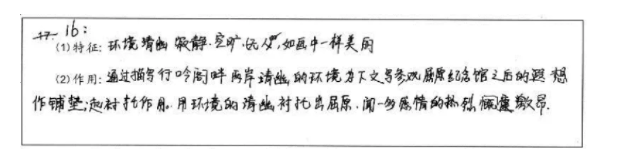 17. 16:
(1)特征:环境清幽 寂静.空旷.优美,如画中一样美丽
(2)作用:通过描写行吟阁畔两岸清幽的环境为下文写参观屈原纪念馆之后的遐想
作铺垫;起衬托作用.用环境的清幽衬托出屈原.闻一多感情的热烈 激昂.